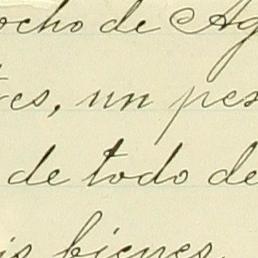 ocho de Ag
es, un pes
de todo de
is bienes